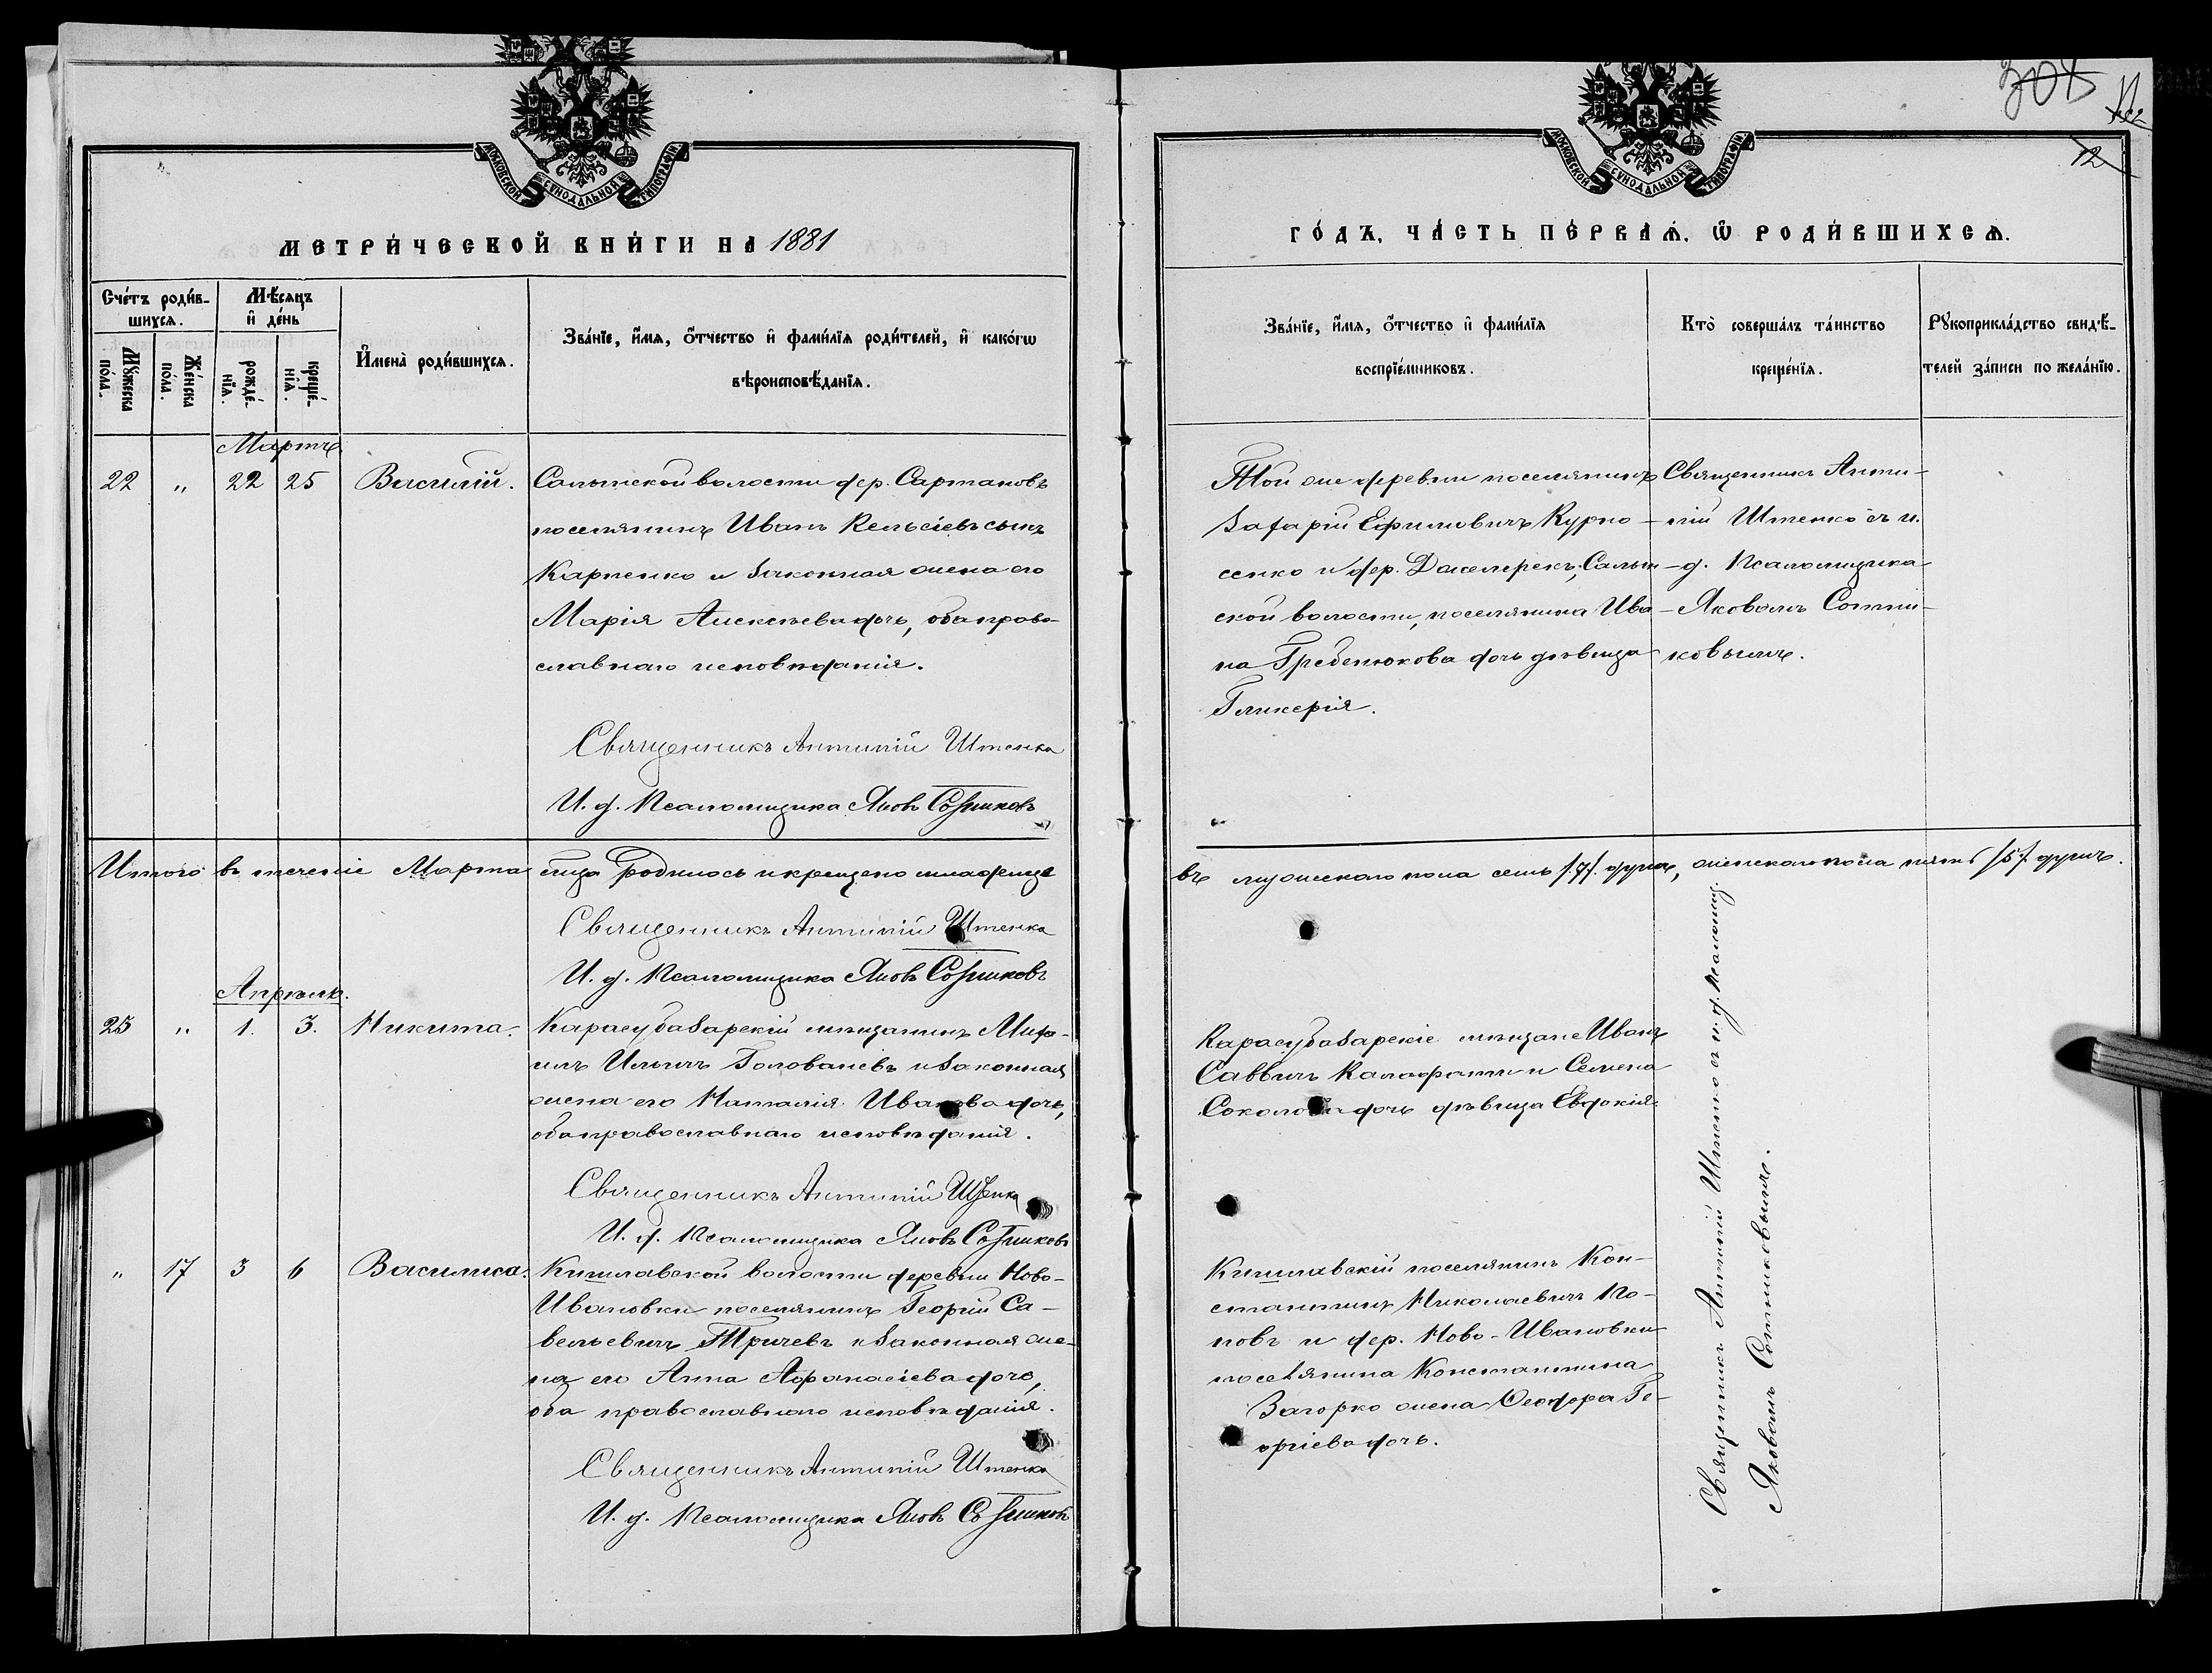 МОСКОВСКОЙ СѴНОДАЛЬНОЙ ТИПОГРАФІИ
МЕТРИ́ЧЕСКОЙ КНИ́ГИ НА 1881
Сче́тъ роди́в-
шихся.
Мѣ́сяцъ
и де́нь
Мꙋ́жеска
по́ла.
Же́нска
по́ла.
рожде́-
нїя.
креще́-
нїя.
Имена̀ роди́вшихся.
Зва́нїе, и́мя, о́тчество и фами́лїя роди́телей, и како́гѡ
вѣроисповѣ́данїя.
Мартъ
22 „ 22 25 Василій.
Салынской волости дер. Сартановъ
поселянинъ Иванъ Кельсіевъ сынъ
Карпенко и законная жена его
Марія Алексѣева дочь, оба право-
славнаго исповѣданія.
Священникъ Антипій Штенко
И. д. Псаломщика Яковъ Сотниковъ
Итого въ теченіе Марта мѣсяца родилось и крещено младенце
Священникъ Антипій Штенко
И. д. Псаломщика Яковъ Сотниковъ
Апрѣль.
25 „ 1. 3. Никита.
Карасубазарскій мѣщанинъ Миха-
илъ Ильичъ Головачевъ и законная
жена его Наталія Иванова дочь,
оба православнаго исповѣданія.
Священникъ Антипій Штенко
И. д. Псаломщика Яковъ Сотниковъ
„ 17 3 6 Василиса.
Кишлавской волости деревни Ново-
Ивановки поселянинъ Георгій Са-
вельевичъ Тричевъ и законная же-
на его Анна Афанасіева дочь,
оба православнаго исповѣданія.
Священникъ Антипій Штенко
И. д. Псаломщика Яковъ Сотниковъ
12
МОСКОВСКОЙ СѴНОДАЛЬНОЙ ТИПОГРАФІИ
ГО́ДЪ, ЧА́СТЬ ПЕ́РВАЯ, Ѡ РОДИ́ВШИХСЯ.
Зва́нїе, и́мя, о́тчество и фами́лїя
воспрїе́мниковъ.
Кто̀ соверша́лъ та́инство
креще́нїя.
Рꙋкоприкла́дство свидѣ́-
телей за́писи по жела́нїю.
Той же деревни поселянинъ
Захарій Ефимовичъ Курно-
сенко и дер. Джемрекъ, Салын-
ской волости, поселянина Ива-
на Гребенюкова дочь дѣвица
Гликерія.
Священникъ Анти-
пій Штенко съ и.
д. Псаломщика
Яковомъ Сотни-
ковымъ.
въ мужескаго пола семь /7/. душъ, женскаго пола пять /5/. душъ.
Карасубазарскіе мѣщане Иванъ
Саввичъ Калафати и Семена
Соколова дочь дѣвица Евдокія.
Кишлавскій поселянинъ Кон-
стантинъ Николаевичъ По-
повъ и дер. Ново-Ивановки
поселянина Константина
Загорко жена Ѳеодора Ге-
оргіева дочь.
Священникъ Антипій Штенко съ и. д. Псаломщ.
Яковомъ Сотниковымъ.